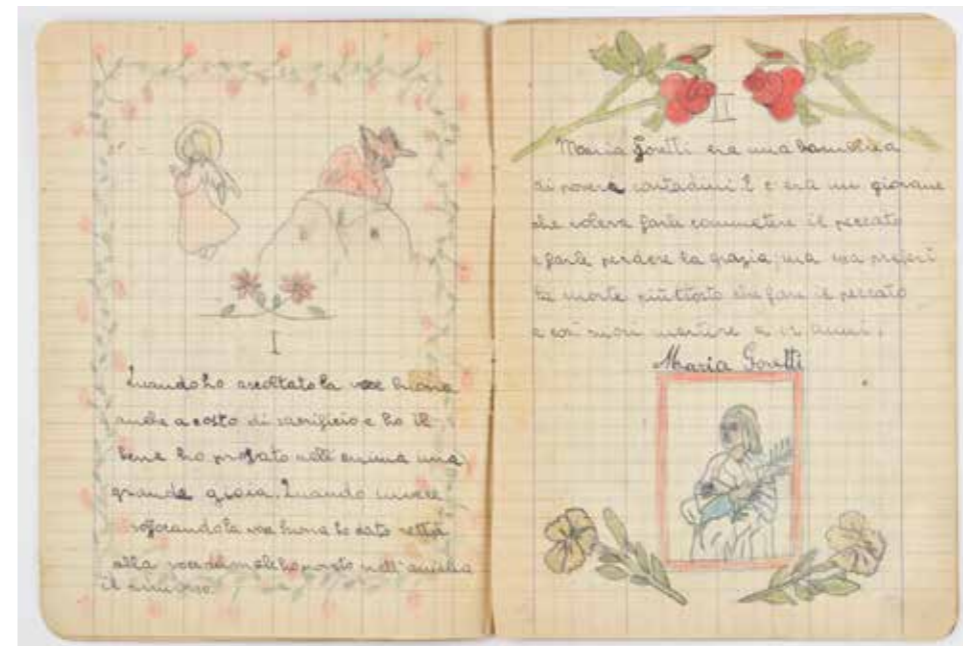 I
Quando ho ascoltato la voce buona
anche a costo di sacrificio e ho il
bene ho provato nell'anima una
grande gioia. Quando invece
soffocando la voce buona ho dato retta
alla voce del male ho
il rimorso.
II
Maria Goretti era una bambina
di poveri contadini. E c'era un giovane
che voleva farle commettere il peccato
e farle perdere la grazia, ma essa preferì
la morte piuttosto che fare il peccato
e così morì martire a 12 anni.
Maria Goretti